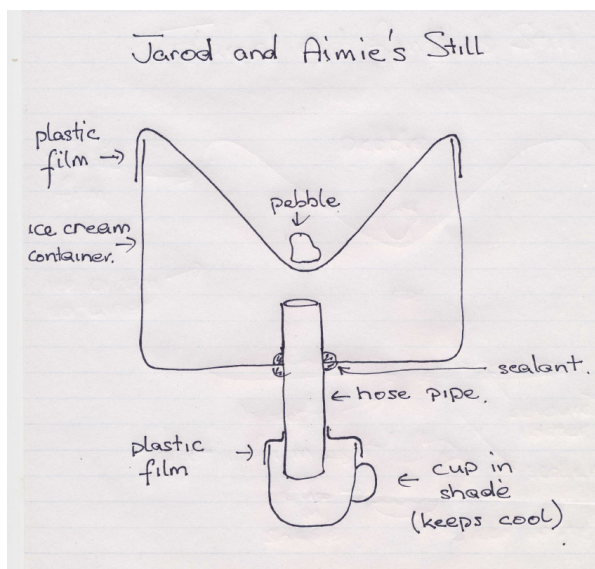 Jarod and Aimie's Still
plastic
film →
pebble
ice cream
container.
sealant.
hose pipe.
plastic
film
cup in
shade
(keeps cool).